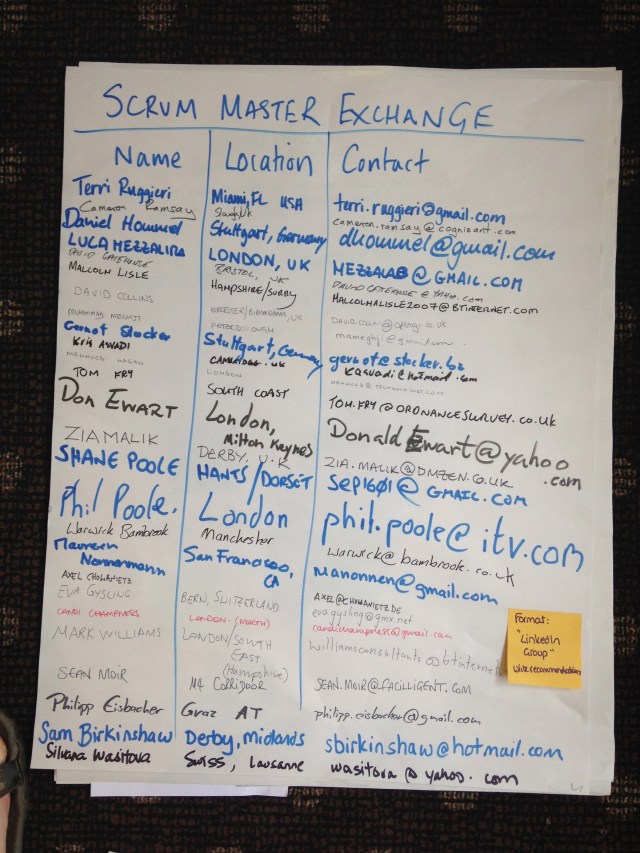 SCRUM MASTER EXCHANGE
Name Location Contact
Terri Ruggieri Miami, FL USA terri.ruggieri@gmail.com
Cameron Ramsay Slough, UK cameron.ramsay@cognizant.com
Daniel Hommel Stuttgart, Germany dhommel@gmail.com
LUCA MEZZALIRA LONDON, UK MEZZALAB@GMAIL.COM
DAVID GATEHOUSE BRISTOL, UK DAVID GATEHOUSE @ YAHOO.COM
MALCOLM LISLE HAMPSHIRE/SURRY MALCOLMALISLE2007@BTINTERNET.COM
DAVID COLLINS WORCESTER/BIRMINGHAM, UK
PETERBOROUGH
Gernot Stocker Stuttgart, Germany gernot@stocker.bz
KRIS AWADI CAMBRIDGE.UK kaswadi@hotmail.com
LONDON
TOM FRY SOUTH COAST TOM.FRY@ORDNANCESURVEY.CO.UK
DON EWART London, Donald Ewart@yahoo
Milton Keynes .com
ZIA MALIK DERBY, U.K ZIA.MALIK@DMZEN.CO.UK
SHANE POOLE HANTS/DORSET SEP1601@GMAIL.COM
Phil Poole. London phil.poole@itv.com
Warwick Bambrook Manchester warwick@bambrook.co.uk
Maureen San Francisco, manonnen@gmail.com
Nonnenmann CA
AXEL CHOWANIETZ AXEL@CHOWANIETZ.DE
EVA GYSLING BERN, SWITZERLAND eva.gysling@gmx.net
CANDI CHAMPNESS LONDON (NORTH) candichampness@gmail.com
MARK WILLIAMS LONDON/SOUTH williamsconsultants@btinternet
EAST
(Hampshire)
SEAN MOIR M4 CORRIDOOR SEAN.MOIR@FACILLIGENT.COM
Philipp Eisbacher Graz AT philipp.eisbacher@gmail.com
Sam Birkinshaw Derby, midlands sbirkinshaw@hotmail.com
Silvana Wasitova Swiss, Lausanne wasitova@yahoo.com
Format:
"LinkedIn
Group"